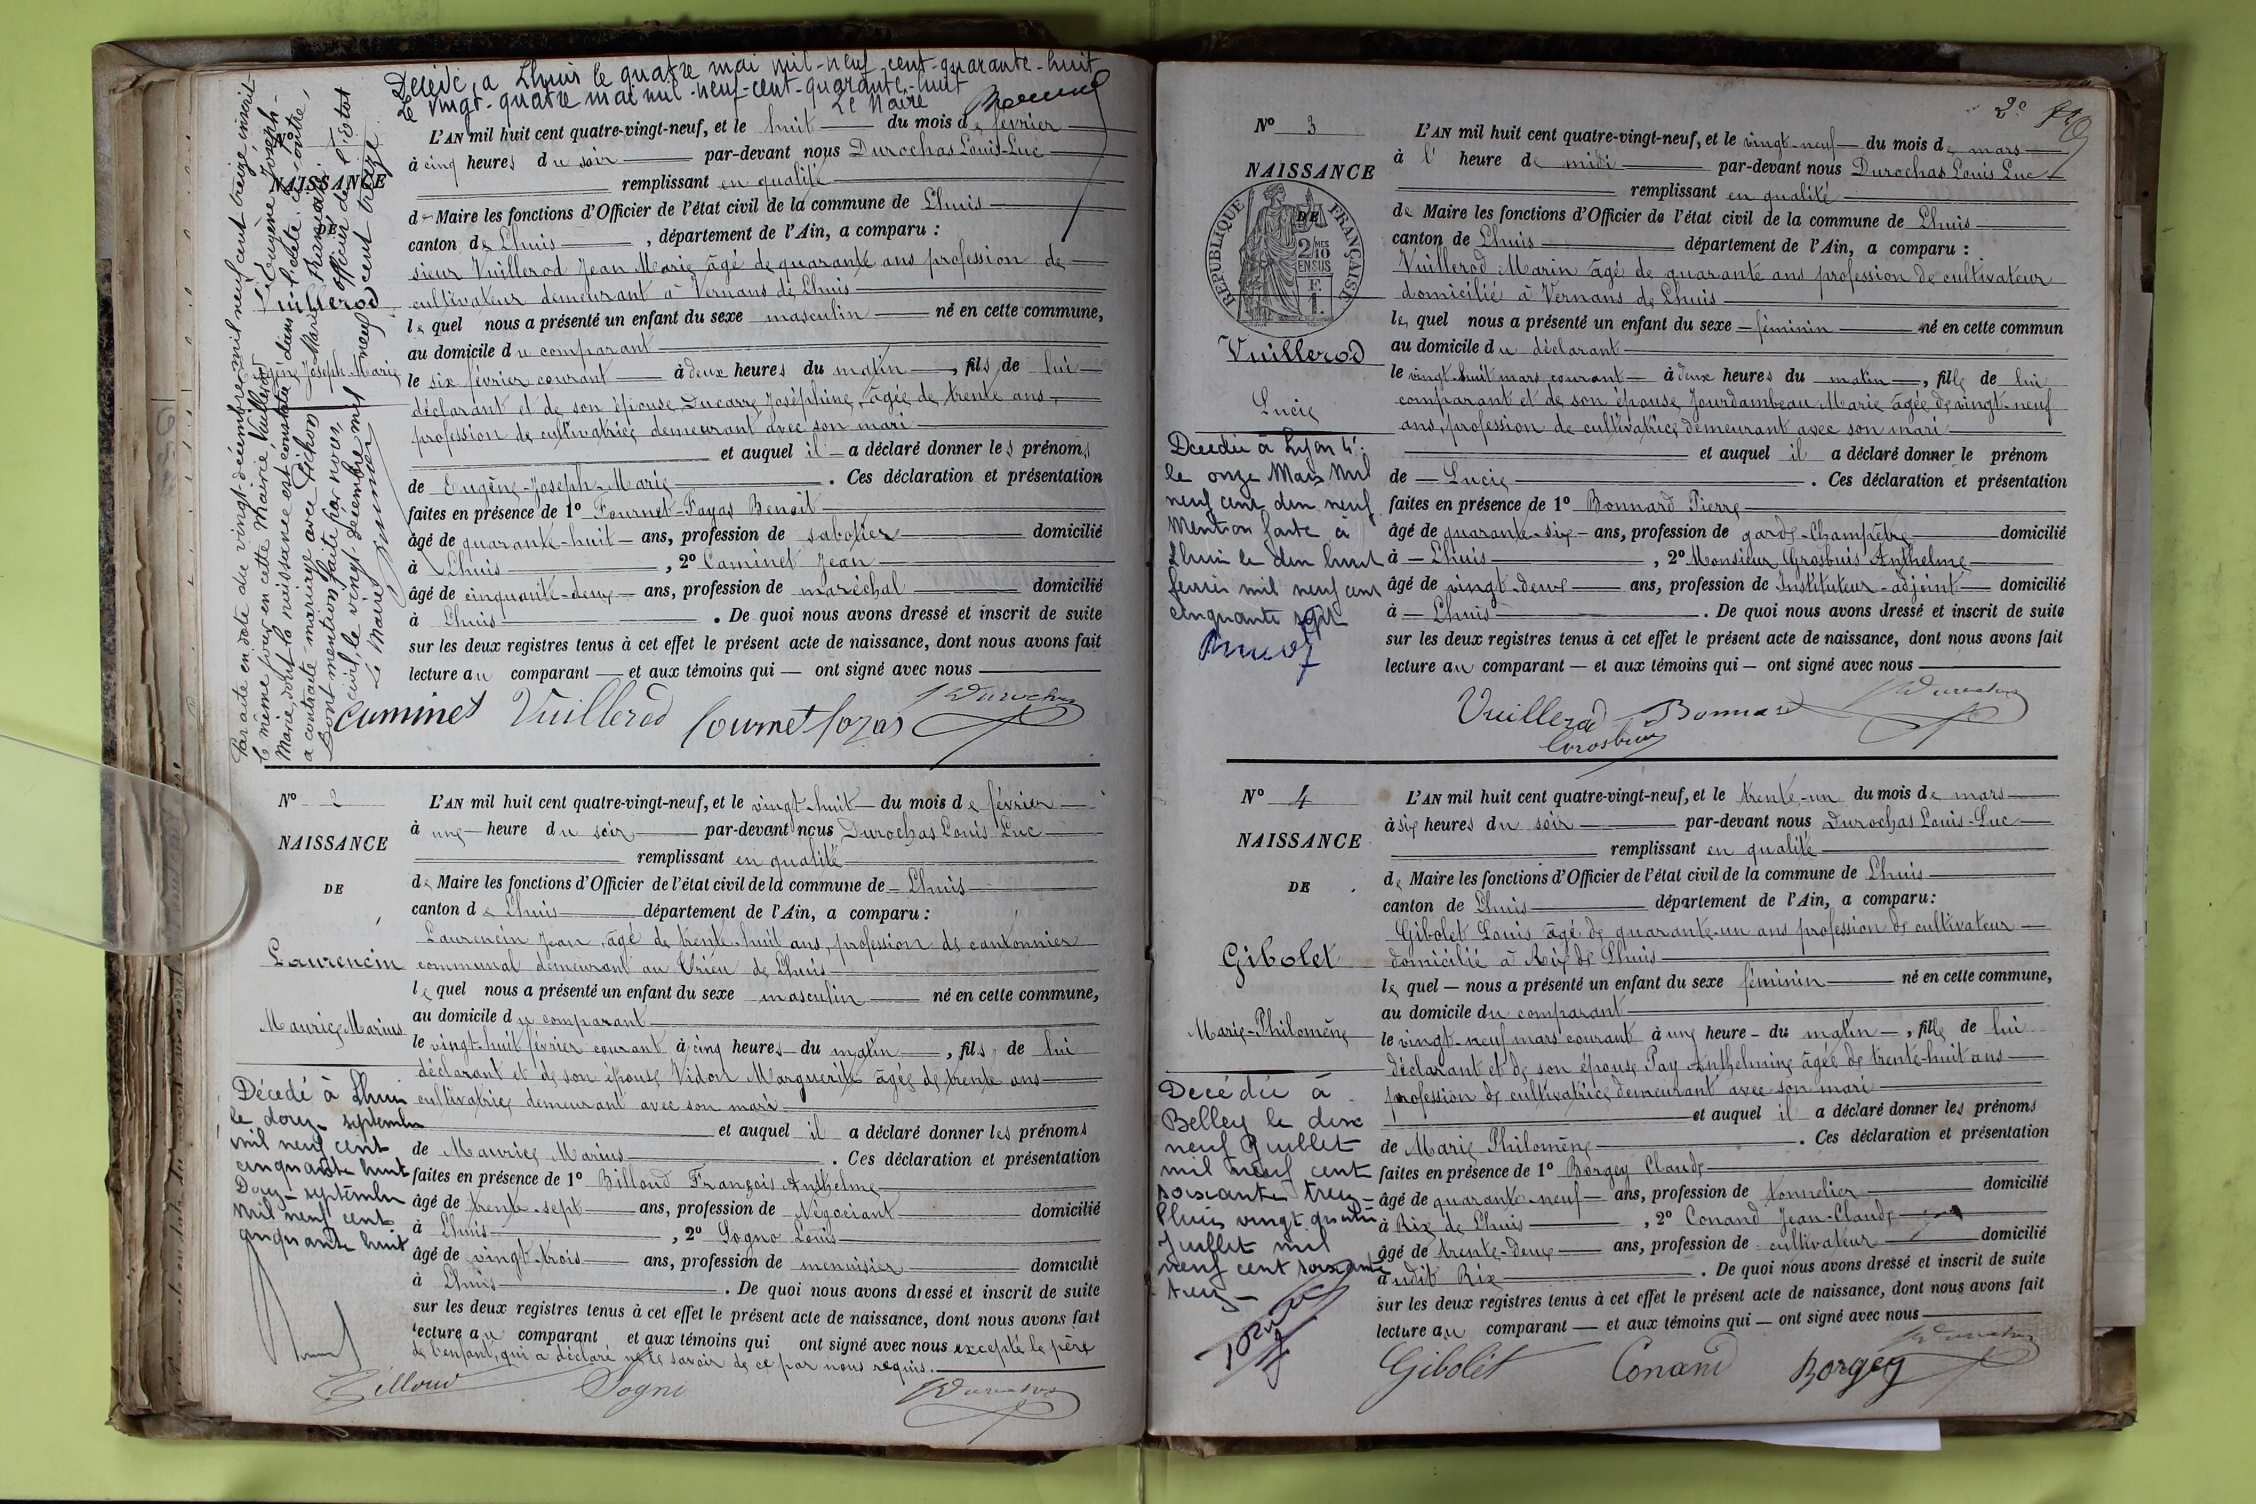 Décédé, a Lhuis le quatre mai mil-neuf-cent-quarante-huit
Le vingt-quatre mai mil-neuf-cent-quarante-huit
Le Maire
NAISSANCE
Vuillerod
Eugène Joseph-Marie
Par acte en date du vingt décembre mil neuf cent treize inscrit
le même jour en cette Mairie, Vuillerod Eugène Joseph-
Marie, dont la naissance est constatée dans l'acte ci-contre,
a contracté mariage avec Pichon Marie
Dont mention faite par nous, officier de l'état
civil, le vingt décembre mil neuf cent treize.
Le Maire,
L'AN mil huit cent quatre-vingt-neuf, et le huit du mois de février
à cinq heures du soir par-devant nous Durochas Louis-Luc
remplissant en qualité
de Maire les fonctions d'Officier de l'état civil de la commune de Lhuis
canton de Lhuis, département de l'Ain, a comparu :
sieur Vuillerod Jean Marie âgé de quarante ans profession de
cultivateur demeurant à Vernans de Lhuis
lequel nous a présenté un enfant du sexe masculin né en cette commune,
au domicile du comparant
le six février courant à deux heures du matin, fils de lui
déclarant et de son épouse Ducarre Joséphine, âgée de trente ans,
profession de cultivatrice demeurant avec son mari
et auquel il a déclaré donner les prénoms
de Eugène-Joseph-Marie. Ces déclaration et présentation
faites en présence de 1º Fournet-Fayas Benoit
âgé de quarante-huit ans, profession de sabotier domicilié
à Lhuis, 2º Caminet Jean
âgé de cinquante-deux ans, profession de maréchal domicilié
à Lhuis. De quoi nous avons dressé et inscrit de suite
sur les deux registres tenus à cet effet le présent acte de naissance, dont nous avons fait
lecture au comparant et aux témoins qui ont signé avec nous
Caminet Vuillerod Fournet fayas Durochas
Nº 2
NAISSANCE
DE
Laurencin
Maurice Marius
Décédé à Lhuis
le douze septembre
mil neuf cent
cinquante huit
Douze septembre
mil neuf cent
cinquante huit
L'AN mil huit cent quatre-vingt-neuf, et le vingt-huit du mois de février
à une heure du soir par-devant nous Durochas Louis Luc
remplissant en qualité
de Maire les fonctions d'Officier de l'état civil de la commune de Lhuis
canton de Lhuis département de l'Ain, a comparu :
Laurencin Jean, âgé de trente-huit ans, profession de cantonnier
communal demeurant au Crieu de Lhuis
lequel nous a présenté un enfant du sexe masculin né en cette commune,
au domicile du comparant
le vingt-huit février courant à cinq heures du matin, fils de lui
déclarant et de son épouse Vidon Marguerite âgée de trente ans
cultivatrice demeurant avec son mari
et auquel il a déclaré donner les prénoms
de Maurice Marius. Ces déclaration et présentation
faites en présence de 1º Billoud François Anthelme
âgé de trente-sept ans, profession de Négociant domicilié
à Lhuis, 2º Sogno Louis
âgé de vingt-trois ans, profession de menuisier domicilié
à Lhuis. De quoi nous avons dressé et inscrit de suite
sur les deux registres tenus à cet effet le présent acte de naissance, dont nous avons fait
lecture au comparant et aux témoins qui ont signé avec nous excepté le père
de l'enfant, qui a déclaré ne le savoir de ce par nous requis.
Billoud Sogno Durochas
2e
Nº 3
NAISSANCE
DE
RÉPUBLIQUE FRANÇAISE
2 MES 10 EN SUS
F. 1.
Vuillerod
Lucie
Décédée à Lyon 4e
le onze Mars Mil
neuf cent dix neuf
Mention faite à
Lhuis le dix huit
février mil neuf cent
cinquante sept
L'AN mil huit cent quatre-vingt-neuf, et le vingt-neuf du mois de mars
à l' heure de midi par-devant nous Durochas Louis Luc
remplissant en qualité
de Maire les fonctions d'Officier de l'état civil de la commune de Lhuis
canton de Lhuis département de l'Ain, a comparu :
Vuillerod Marin âgé de quarante ans profession de cultivateur
domicilié à Vernans de Lhuis
lequel nous a présenté un enfant du sexe féminin né en cette commun
au domicile du déclarant
le vingt-huit mars courant à deux heures du matin, fille de lui
comparant et de son épouse Jourdambeau Marie âgée de vingt-neuf
ans, profession de cultivatrice demeurant avec son mari
et auquel il a déclaré donner le prénom
de Lucie. Ces déclaration et présentation
faites en présence de 1º Bonnard Pierre
âgé de quarante-six ans, profession de garde-Champêtre domicilié
à Lhuis, 2º Monsieur Grosbuis Anthelme
âgé de vingt-deux ans, profession de Instituteur-adjoint domicilié
à Lhuis. De quoi nous avons dressé et inscrit de suite
sur les deux registres tenus à cet effet le présent acte de naissance, dont nous avons fait
lecture au comparant et aux témoins qui ont signé avec nous
Vuillerod Bonnard Durochas
Grosbuis
Nº 4
NAISSANCE
DE
Gibolet
Marie-Philomène
Décédée à
Belley le dix
neuf Juillet
mil neuf cent
soixante treize
Lhuis vingt quatre
Juillet mil
neuf cent soixante
treize
L'AN mil huit cent quatre-vingt-neuf, et le trente-un du mois de mars
à six heures du soir par-devant nous Durochas Louis-Luc
remplissant en qualité
de Maire les fonctions d'Officier de l'état civil de la commune de Lhuis
canton de Lhuis département de l'Ain, a comparu:
Gibolet Louis âgé de quarante-un ans profession de cultivateur
domicilié à Rix de Lhuis
lequel nous a présenté un enfant du sexe féminin né en cette commune,
au domicile du comparant
le vingt-neuf mars courant à une heure du matin, fille de lui
déclarant et de son épouse Pay Anthelmine âgée de trente-huit ans
profession de cultivatrice demeurant avec son mari
et auquel il a déclaré donner les prénoms
de Marie Philomène. Ces déclaration et présentation
faites en présence de 1º Borgey Claude
âgé de quarante-neuf ans, profession de tonnelier domicilié
à Rix de Lhuis, 2º Conand Jean-Claude
âgé de trente-deux ans, profession de cultivateur domicilié
audit Rix. De quoi nous avons dressé et inscrit de suite
sur les deux registres tenus à cet effet le présent acte de naissance, dont nous avons fait
lecture au comparant et aux témoins qui ont signé avec nous
Gibolet Conand Borgey Durochas